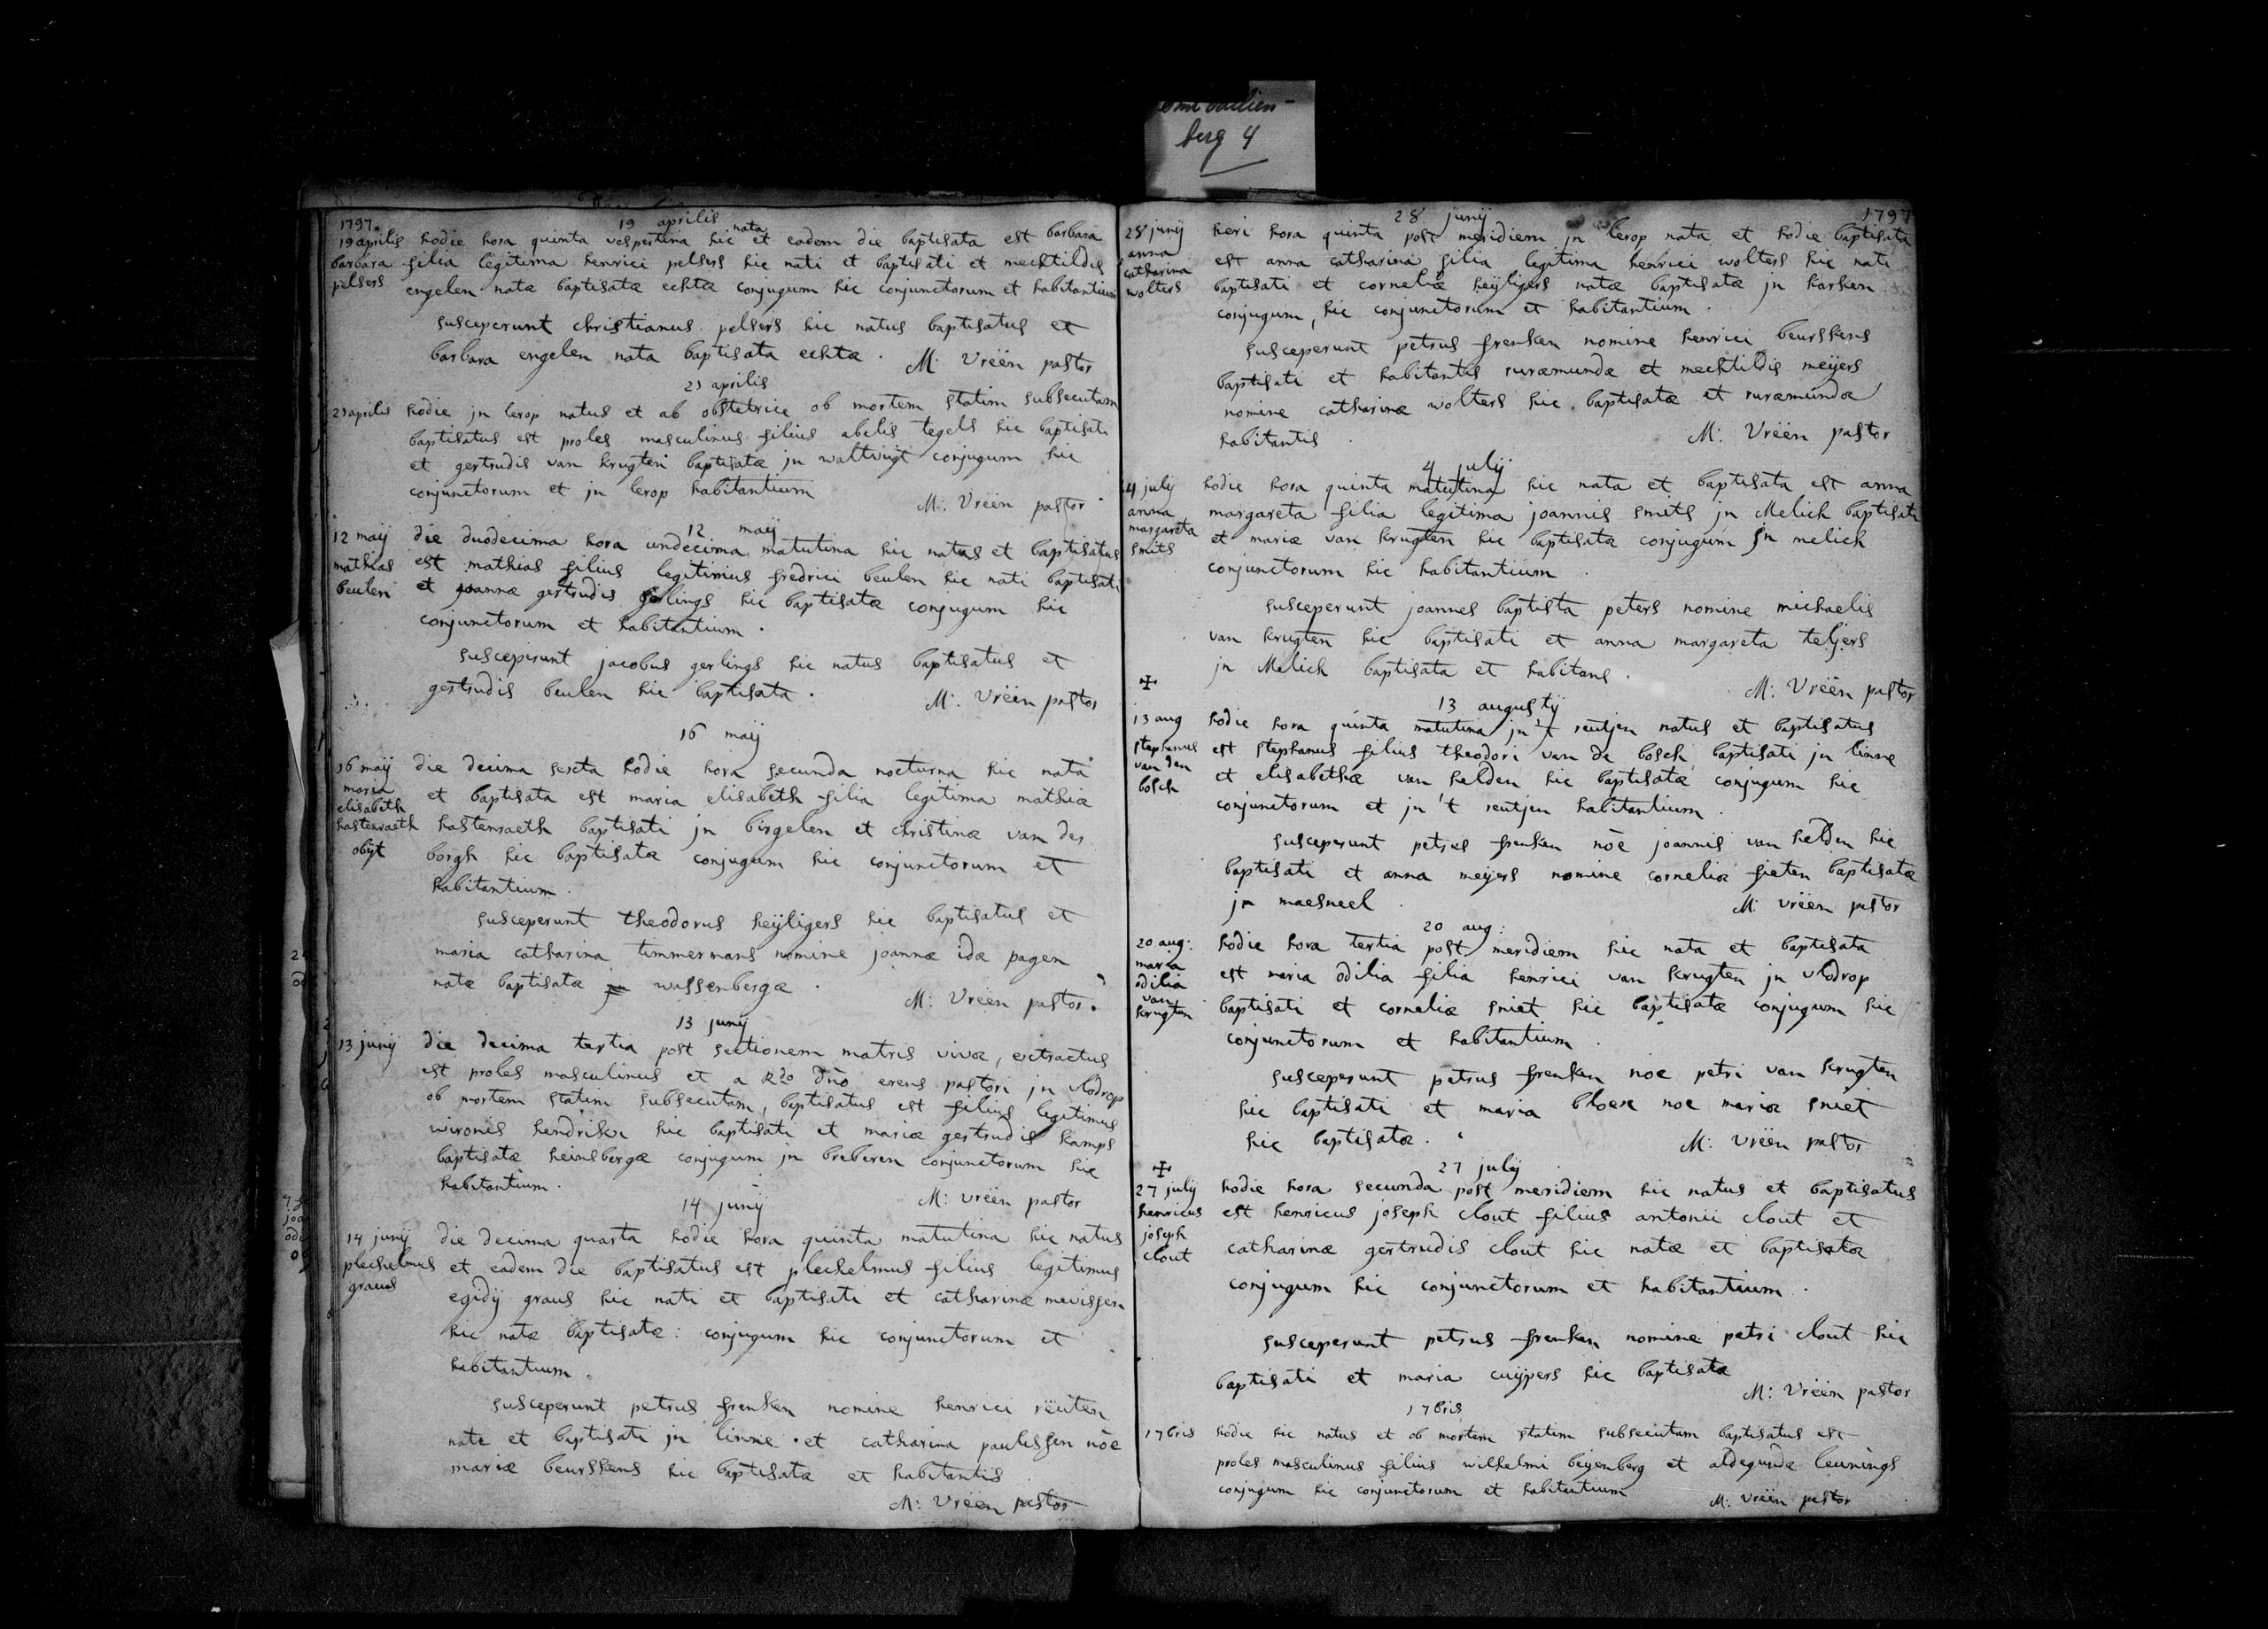 berg 4
1797.
19 aprilis
19 aprilis
barbara
pelsers
hodie hora quinta vespertina hic nata et eadem die baptisata est barbara
filia legitima henrici pelsers hic nati et baptisati et mechtildis
engelen nata baptisatæ echtæ conjugum hic conjunctorum et habitantium
susceperunt christianus pelsers hic natus baptisatus et
barbara engelen nata baptisata echtæ.
M: Vrëën pastor
21 aprilis
21 aprilis
hodie jn lerop natus et ab obstetrice ob mortem statim subsecutam
baptisatus est proles masculinus filius abelis tegels hic baptisati
et gertrudis van krugten baptisatæ jn conjugum hic
conjunctorum et jn lerop habitantium
M: Vrëën pastor
12 maij
12 maij
mathias
beulen
die duodecima hora undecima matutina hic natus et baptisatus
est mathias filius legitimus fredrici beulen hic nati baptisati
et joannæ gertrudis gerlings hic baptisatæ conjugum hic
conjunctorum et habitantium.
susceperunt jacobus gerlings hic natus baptisatus et
gertrudis beulen hic baptisata.
M: Vrëën pastor
16 maij
16 maij
maria
elisabeth
hastenraeth
obijt
die decima sexta hodie hora secunda nocturna hic nata
et baptisata est maria elisabeth filia legitima mathiæ
hastenraeth baptisati jn birgelen et christinæ van der
borgh hic baptisatæ conjugum hic conjunctorum et
habitantium.
susceperunt theodorus heijligers hic baptisatus et
maria catharina timmermans nomine joannæ idæ pagen
natæ baptisatæ wassenbergæ.
M: Vrëën pastor.
13 junij
13 junij
die decima tertia post sectionem matris vivæ, extractus
est proles masculinus et a Rdo dno erens pastori jn vlodrop
ob mortem statim subsecutam, baptisatus est filius legitimus
wironis hendrikx hic baptisati et mariæ gertrudis kamps
baptisatæ heinsbergæ conjugum jn breberen conjunctorum hic
habitantium.
M: Vrëën pastor
14 junij
14 junij
plechelmus
graus
die decima quarta hodie hora quinta matutina hic natus
et eadem die baptisatus est plechelmus filius legitimus
egidij graus hic nati et baptisati et catharinæ mevissen
hic natæ baptisatæ: conjugum hic conjunctorum et
habitantium.
susceperunt petrus frenken nomine henrici rëuten
nati et baptisati jn linne. et catharina paulissen nõe
mariæ beurskens hic baptisatæ et habitantis
M: Vrëën pastor
1797
28 junij
28 junij
anna
catharina
wolters
heri hora quinta post meridiem jn lerop nata et hodie baptisata
est anna catharina filia legitima henrici wolters hic nati
baptisati et corneliæ heijligers natæ baptisatæ jn karken
conjugum, hic conjunctorum et habitantium.
susceperunt petrus frenken nomine henrici beurskens
baptisati et habitantis ruræmundæ et mechtildis meijers
nomine catharinæ wolters hic baptisatæ et ruræmundæ
habitantis.
M: Vrëën pastor
4 julij
4 july
anna
margareta
smits
hodie hora quinta matutina hic nata et baptisata est anna
margareta filia legitima joannis smits jn Melick baptisati
et mariæ van krugten hic baptisatæ conjugum jn melick
conjunctorum hic habitantium.
susceperunt joannes baptista peters nomine michaelis
van krugten hic baptisati et anna margareta teljers
jn Melick baptisata et habitans.
M: Vrëën pastor
13 augusty
13 aug
stephanus
van den
bosch
hodie hora quinta matutina jn 't reutjen natus et baptisatus
est stephanus filius theodori van de bosch baptisati jn linne
et elisabethæ van helden hic baptisatæ conjugum hic
conjunctorum et jn 't reutjen habitantium.
susceperunt petrus frenken nõe joannis van helden hic
baptisati et anna meijers nomine corneliæ fieten baptisatæ
jn maesneel.
M: vrëën pastor
20 aug:
20 aug:
maria
odilia
van
krugten
hodie hora tertia post meridiem hic nata et baptisata
est maria odilia filia henrici van krugten jn vlodrop
baptisati et corneliæ sniet hic baptisatæ conjugum hic
conjunctorum et habitantium.
susceperunt petrus frenken noe petri van krugten
hic baptisati et maria bloex noe mariæ sniet
hic baptisatæ.
M: Vrëën pastor
27 july
27 july
henricus
joseph
clout
hodie hora secunda post meridiem hic natus et baptisatus
est henricus joseph clout filius antonii clout et
catharinæ gertrudis clout hic natæ et baptisatæ
conjugum hic conjunctorum et habitantium.
susceperunt petrus frenken nomine petri clout hic
baptisati et maria cuijpers hic baptisata
M: Vrëën pastor
1 7bris
1 7bris
hodie hic natus et ob mortem statim subsecutam baptisatus est
proles masculinus filius wilhelmi beijenberg et aldegundæ leunings
conjugum hic conjunctorum et habitantium
M: vrëën pastor